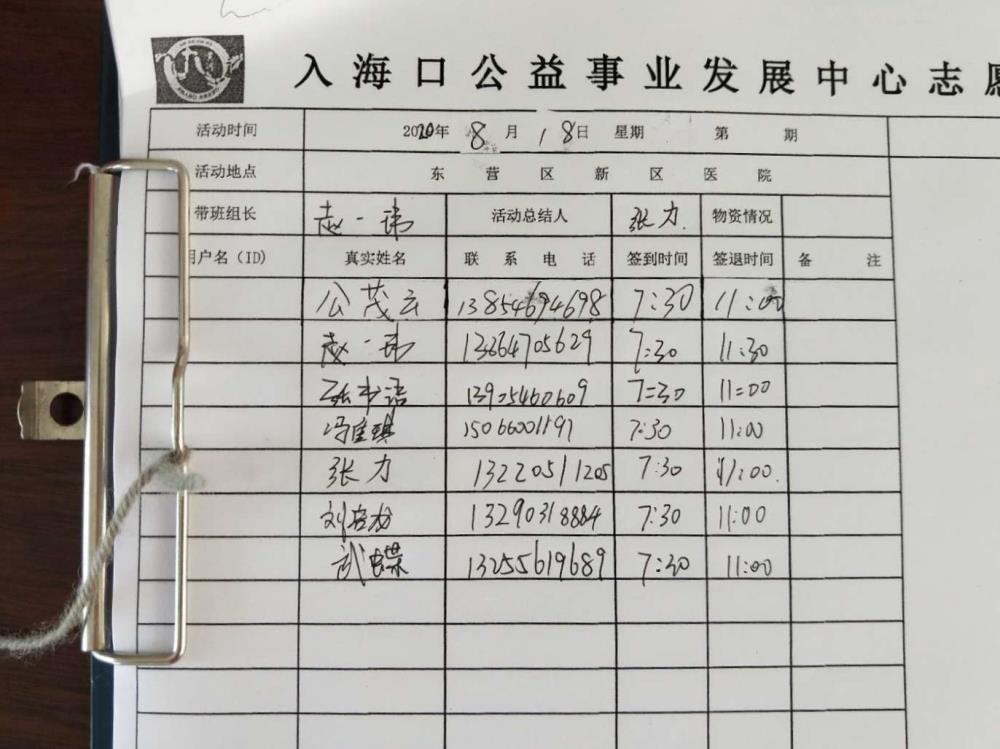 入海口公益事业发展中心志愿
活动时间 2020年 8月 18日 星期 第 期
活动地点 东营区新区医院
带班组长 赵一玮 活动总结人 张力 物资情况
用户名（ID) 真实姓名 联系电话 签到时间 签退时间 备注
公茂云 13854694698 7:30 11:00
赵一玮 13364705629 7:30 11:30
张书语 13905460609 7:30 11:00
冯宝琪 15066001197 7:30 11:00
张力 13220511205 7:30 11:00
刘 13290318884 7:30 11:00
武蝶 13255619689 7:30 11:00